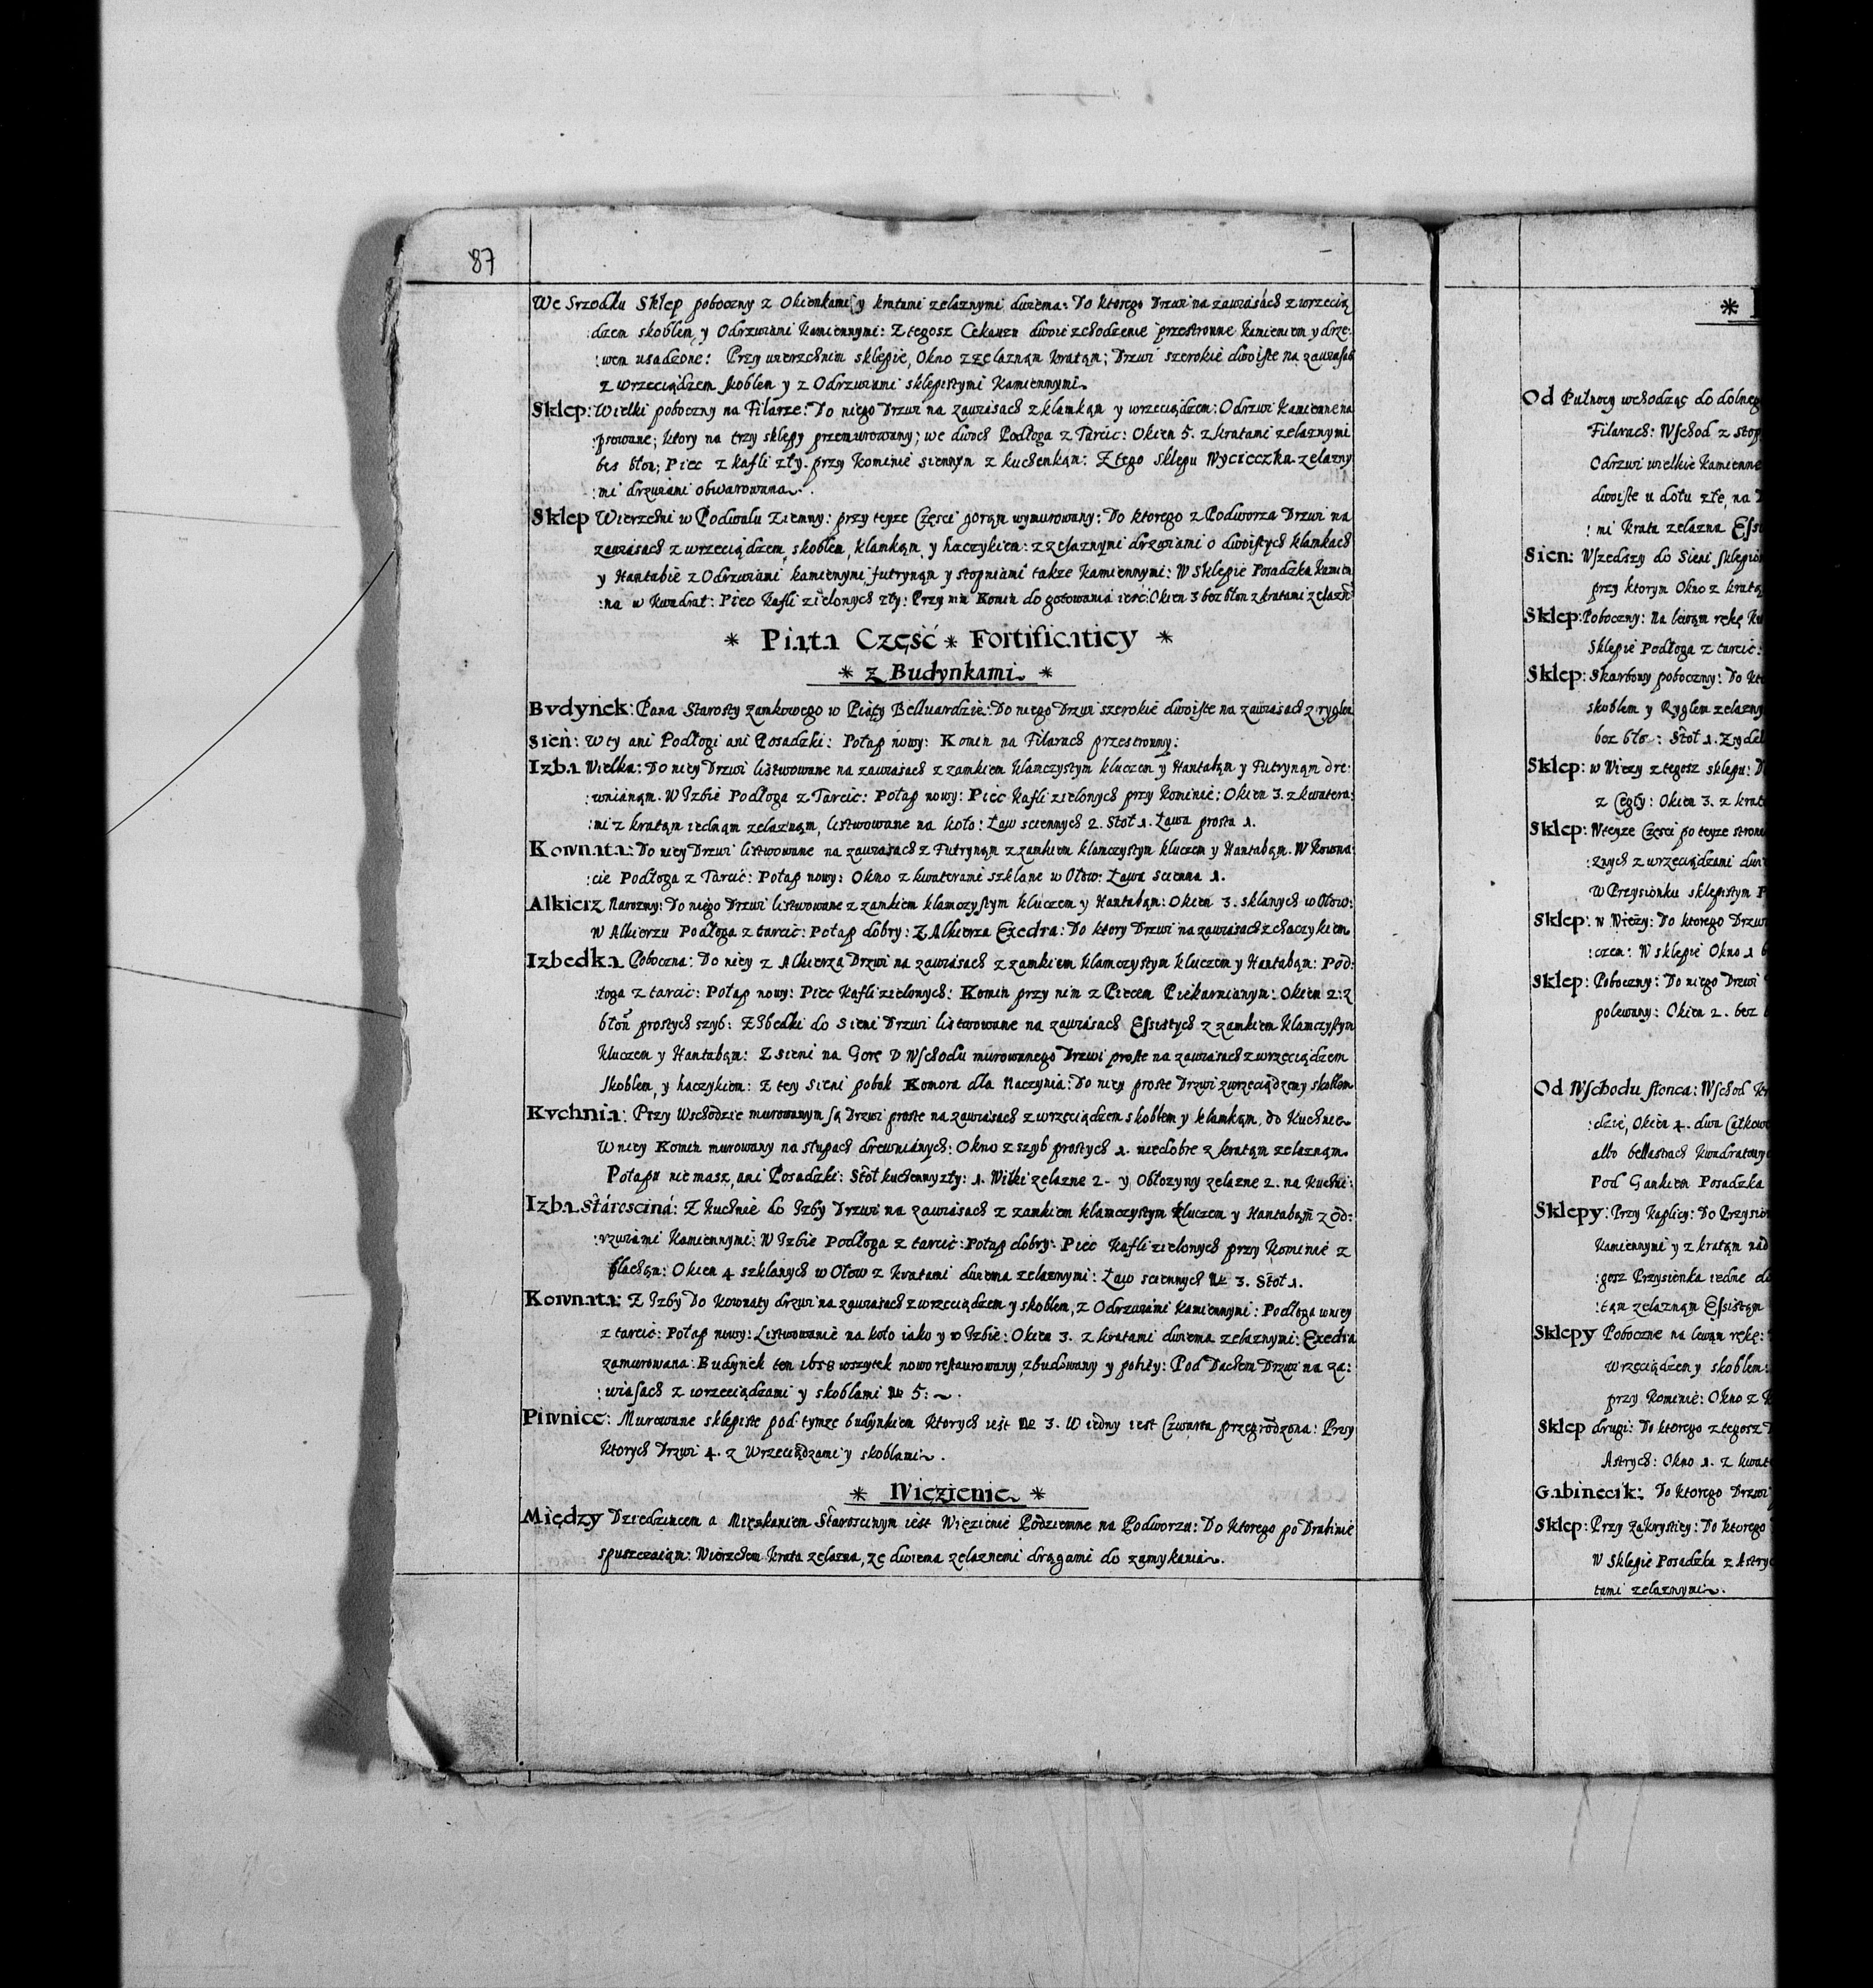 87
We Srzodku Sklep poboczny z Okienkami y kratami zelaznymi dwiema: Do ktorego Drzwi na zawiasach z wrzecią
:dzem skoblem, y Odrzwiami Kamiennymi: Z tegosz Cekauzu dwoie zchodzenie przestronne Kamieniem y drze:
:wem usadzone: Przy wierzchnim sklepie, Okno z zelaznąm kratąm; Drzwi szerokie dwoiste na zawiasach
z wrzeciądzem skoblem y z Odrzwiami sklepistymi Kamiennymi.
Sklep: Wielki poboczny na Filarze: Do niego Drzwi na zawiasach z klamkąm y wrzeciądzem: Odrzwi Kamienne na
:prowane; ktory na trzy sklepy przemurowany; we dwoch Podłoga z Tarcic: Okien 5. z kratami zelaznymi
bes błon; Piec z kafli zły. przy Kominie siennym z kuchenkąm: Z tego sklepu Wycieczka zelazny
:mi drzwiami obwarowana.
Sklep Wierzchni w Podwalu Ziemny: przy teyze Części gorąm wymurowany: Do ktorego z Podworza Drzwi na
zawiasach z wrzeciądzem, skoblem, klamkąm, y haczykiem: z zelaznymi drzwiami o dwoistych klamkach
y Hantabie z Odrzwiami kamiennymi futrynąm y stopniami takze Kamiennymi: W Sklepie Posadzka Kamien
:na w Kwadrat: Piec Kafli zielonych zły: Przy nim Komin do gotowania ieść: Okien 3 bez błon z kratami zelazn
* Piąta Część * Fortificatiey *
* z Budynkami *
Bvdynek: Pana Starosty zamkowego w Piąty Belluardzie: Do niego Drzwi szerokie dwoiste na zawiasach z ryglem
Sień: W tey ani Podłogi ani Posadzki: Potap nowy: Komin na Filarach przestronny:
Izba Wielka: Do niey Drzwi listwowane na zawiasach z zamkiem klamczystym kluczem y Hantabąm y Futrynąm dre:
:wnianąm. W Izbie Podłoga z Tarcic: Potap nowy: Piec Kafli zielonych przy Kominie: Okien 3. z kwatera:
:mi z kratąm iednąm zelaznąm, listwowane na koło: Ław sciennych 2. Stoł 1. Ława prosta 1.
Kownata: Do niey Drzwi listwowane na zawiasach z Futrynąm z zamkiem klamczystym kluczem y Hantabąm. W Kowna:
:cie Podłoga z Tarcic: Potap nowy: Okno z kwaterami szklane w Ołow: Ława scienna 1.
Alkierz Narozny: Do niego Drzwi listwowane z zamkiem klamczystym kluczem y Hantabąm: Okien 3. sklanych w Ołow:
W Alkierzu Podłoga z tarcic: Potap dobry: Z Alkierza Exedra: Do ktory Drzwi na zawiasach z haczykiem
Izbedka Poboczna: Do niey z Alkierza Drzwi na zawiasach z zamkiem klamczystym kluczem y Hantabąm: Pod:
łoga z tarcic: Potap nowy: Piec Kafli zielonych: Komin przy nim z Piecem Piekarnianym: Okien 2: z
błon prostych szyb: Z Izbedki do Sieni Drzwi listwowane na zawiasach Essistych z zamkiem klamczystym
kluczem y Hantabąm: Z sieni na Gorę D Wschodu murowanego Drzwi proste na zawiasach z wrzeciądzem
skoblem, y haczykiem: Z tey Sieni pobok Komora dla Naczynia: Do niey proste Drzwi z wrzeciądzem y skoblem
Kvchnia: Przy Wschodzie murowanym są Drzwi proste na zawiasach z wrzeciądzem skoblem y klamkąm, do Kuchnie
W niey Komin murowany na słupach drewnianych: Okno z szyb prostych 1. niedobre z kratąm zelaznąm
Potapu nie masz, ani Posadzki: Stoł kuchenny zły: 1. Wilki zelazne 2- y Obłozyny zelazne 2. na Kuchni:
Izba Stároscina: Z kuchnie do Izby Drzwi na zawiasach z zamkiem klamczystym kluczem y Hantabąm z Od:
:rzwiami Kamiennymi: W Izbie Podłoga z tarcic: Potap dobry: Piec Kafli zielonych przy Kominie z
blachąm: Okien 4 szklanych w Ołow z kratami dwiema zelaznymi: Ław sciennych № 3. Stoł 1.
Kownata: Z Izby Do kownaty drzwi na zawiasach z wrzeciądzem y skoblem, z Odrzwiami Kamiennymi: Podłoga w niey
z tarcic: Potap nowy: Listwowanie na koło iako y w Izbie: Okien 3. z kratami dwiema zelaznymi: Exedra
zamurowana: Budynek ten 1658 wszytek nowo restaurowany, zbudowany y pobity: Pod Dachem Drzwi na za:
:wiasach z wrzeciądzami y skoblami № 5: ~.
Piwnice: Murowane sklepiste pod tymze budynkiem ktorych iest № 3. W iedny iest Czwarta przegrodzona: Przy
ktorych Drzwi 4. z Wrzeciądzami y skoblami.
* Więzienie *
Między Dziedzincem a Mięskaniem Staroscinym iest Więzienie Podziemne na Podworzu: Do ktorego po Drabinie
spuszczaiąm: Wierzchem Krata zelazna, ze dwiema zelaznemi drągami do zamykania.
*
Od Pułnocy wchodząc do dolneg
Filarach: Wschod z stop
Odrzwi wielkie Kamienne
dwoiste u dołu złe, na
:mi Krata zelazna Ess
Sien: Wszedszy do Sieni sklepio
przy ktorym Okno z kratą
Sklep: Poboczny: Na lewąm rękę
Sklepie Podłoga z tarcic:
Sklep: Skarbowy poboczny: Do kt
skoblem y Ryglem zelazny
bez bło: Stoł 1. Zydel
Sklep: w Wiezy z tegosz sklepu:
z Cegły: Okien 3. z krat
Sklep: W teyze Części po teyze stronie
:znych z wrzeciądzami dwi
W Przysionku sklepistym
Sklep: w Wieży: Do ktorego Drzwi
:czem: W sklepie Okno 1
Sklep: Poboczny: Do niego Drzwi
polewany: Okien 2. bez
Od Wschodu słonca: Wschod
:dzie, Okien 4. dwa Całkow
albo bellasrach Kwadratowy
Pod Gankiem Posadzka
Sklepy: Przy Kaplicy: Do Przysion
Kamiennymi y z kratąm nad
:gosz Przysienka iedne
:tąm zelaznąm Essistąm
Sklepy Poboczne na lewąm rękę:
Wrzeciądzem y skoblem:
przy Kominie: Okno z
Sklep drugi: Do ktorego z tegosz
Astrych: Okno 1. z kwat
Gabinecik: Do ktorego Drzwi
Sklep: Przy Zakrystiey: Do ktorego
W Sklepie Posadzka z Astry
tami zelaznymi.